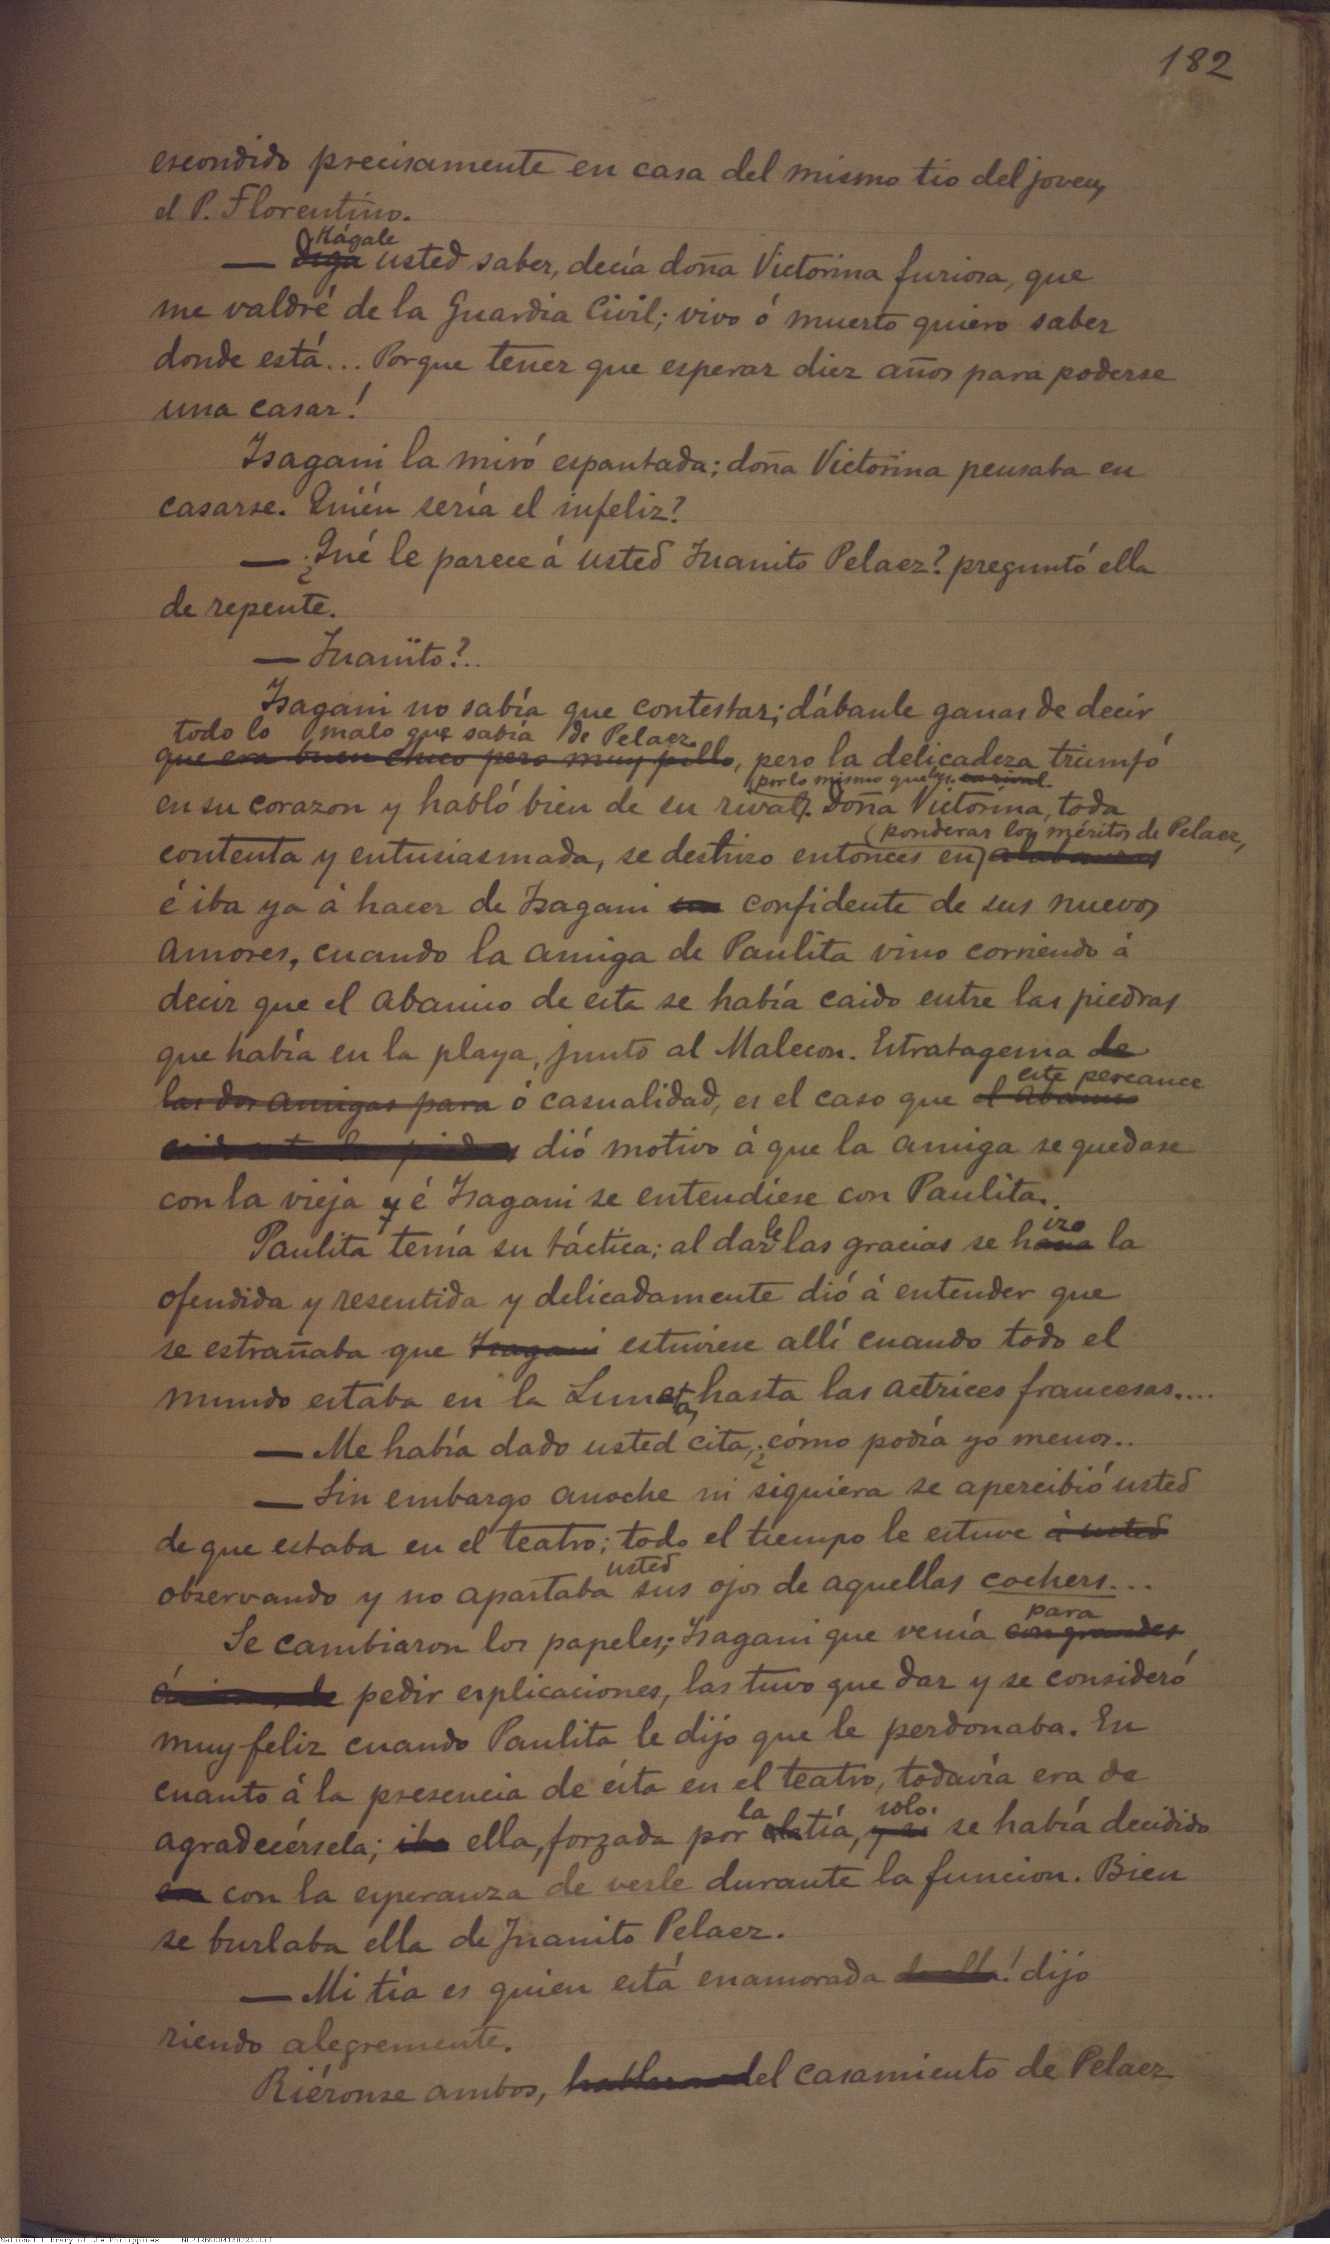 182
escondido precisamente en casa del mismo tio del joven,
el P. Florentino.
Hágale
— Diga usted saber, decía doña Victorina furiosa, que
me valdré de la Guardia Civil; vivo ó muerto quiero saber
donde está... Porque tener que esperar diez años para poderse
una casar!
Isagani la miró espantada; doña Victorina pensaba en
casarse. Quién sería el infeliz?
— ¿Qué le parece á usted Juanito Pelaez? preguntó ella
de repente.
— Juanito?..
Isagani no sabía que contestar; dábanle ganas de decir
todo lo malo que sabía de Pelaez
que era buen chico pero muy pillo, pero la delicadeza triunfó
por lo mismo que lo era. su rival.
en su corazon y habló bien de su rival. Doña Victorina, toda
ponderar los méritos de Pelaez,
contenta y entusiasmada, se deshizo entonces en alabanzas
é iba ya á hacer de Isagani su confidente de sus nuevos
amores, cuando la amiga de Paulita vino corriendo á
decir que el abanico de esta se había caido entre las piedras
que había en la playa, junto al Malecon. Estratagema de
este percance
las dos amigas para ó casualidad, es el caso que el abanico
dió motivo á que la amiga se quedase
con la vieja y é Isagani se entendiese con Paulita.
le izo
Paulita tenía su táctica; al dar las gracias se hacia la
ofendida y resentida y delicadamente dió á entender que
se estrañaba que Isagani estuviese allí cuando todo el
mundo estaba en la Luneta, hasta las actrices francesas....
— Me había dado usted cita, ¿cómo podía yo menos..
— Sin embargo anoche ni siquiera se apercibió usted
de que estaba en el teatro; todo el tiempo le estuve á usted
usted
observando y no apartaba sus ojos de aquellas cochers...
para
Se cambiaron los papeles; Isagani que venía con grandes
pedir esplicaciones, las tuvo que dar y se consideró
muy feliz cuando Paulita le dijo que le perdonaba. En
cuanto á la presencia de ésta en el teatro, todavía era de
la solo.
agradecérsela; iba ella, forzada por tía, y si se había decidido
en con la esperanza de verle durante la funcion. Bien
se burlaba ella de Juanito Pelaez.
— Mi tía es quien está enamorada de ella! dijo
riendo alegremente.
Riéronse ambos, hablaron del casamiento de Pelaez